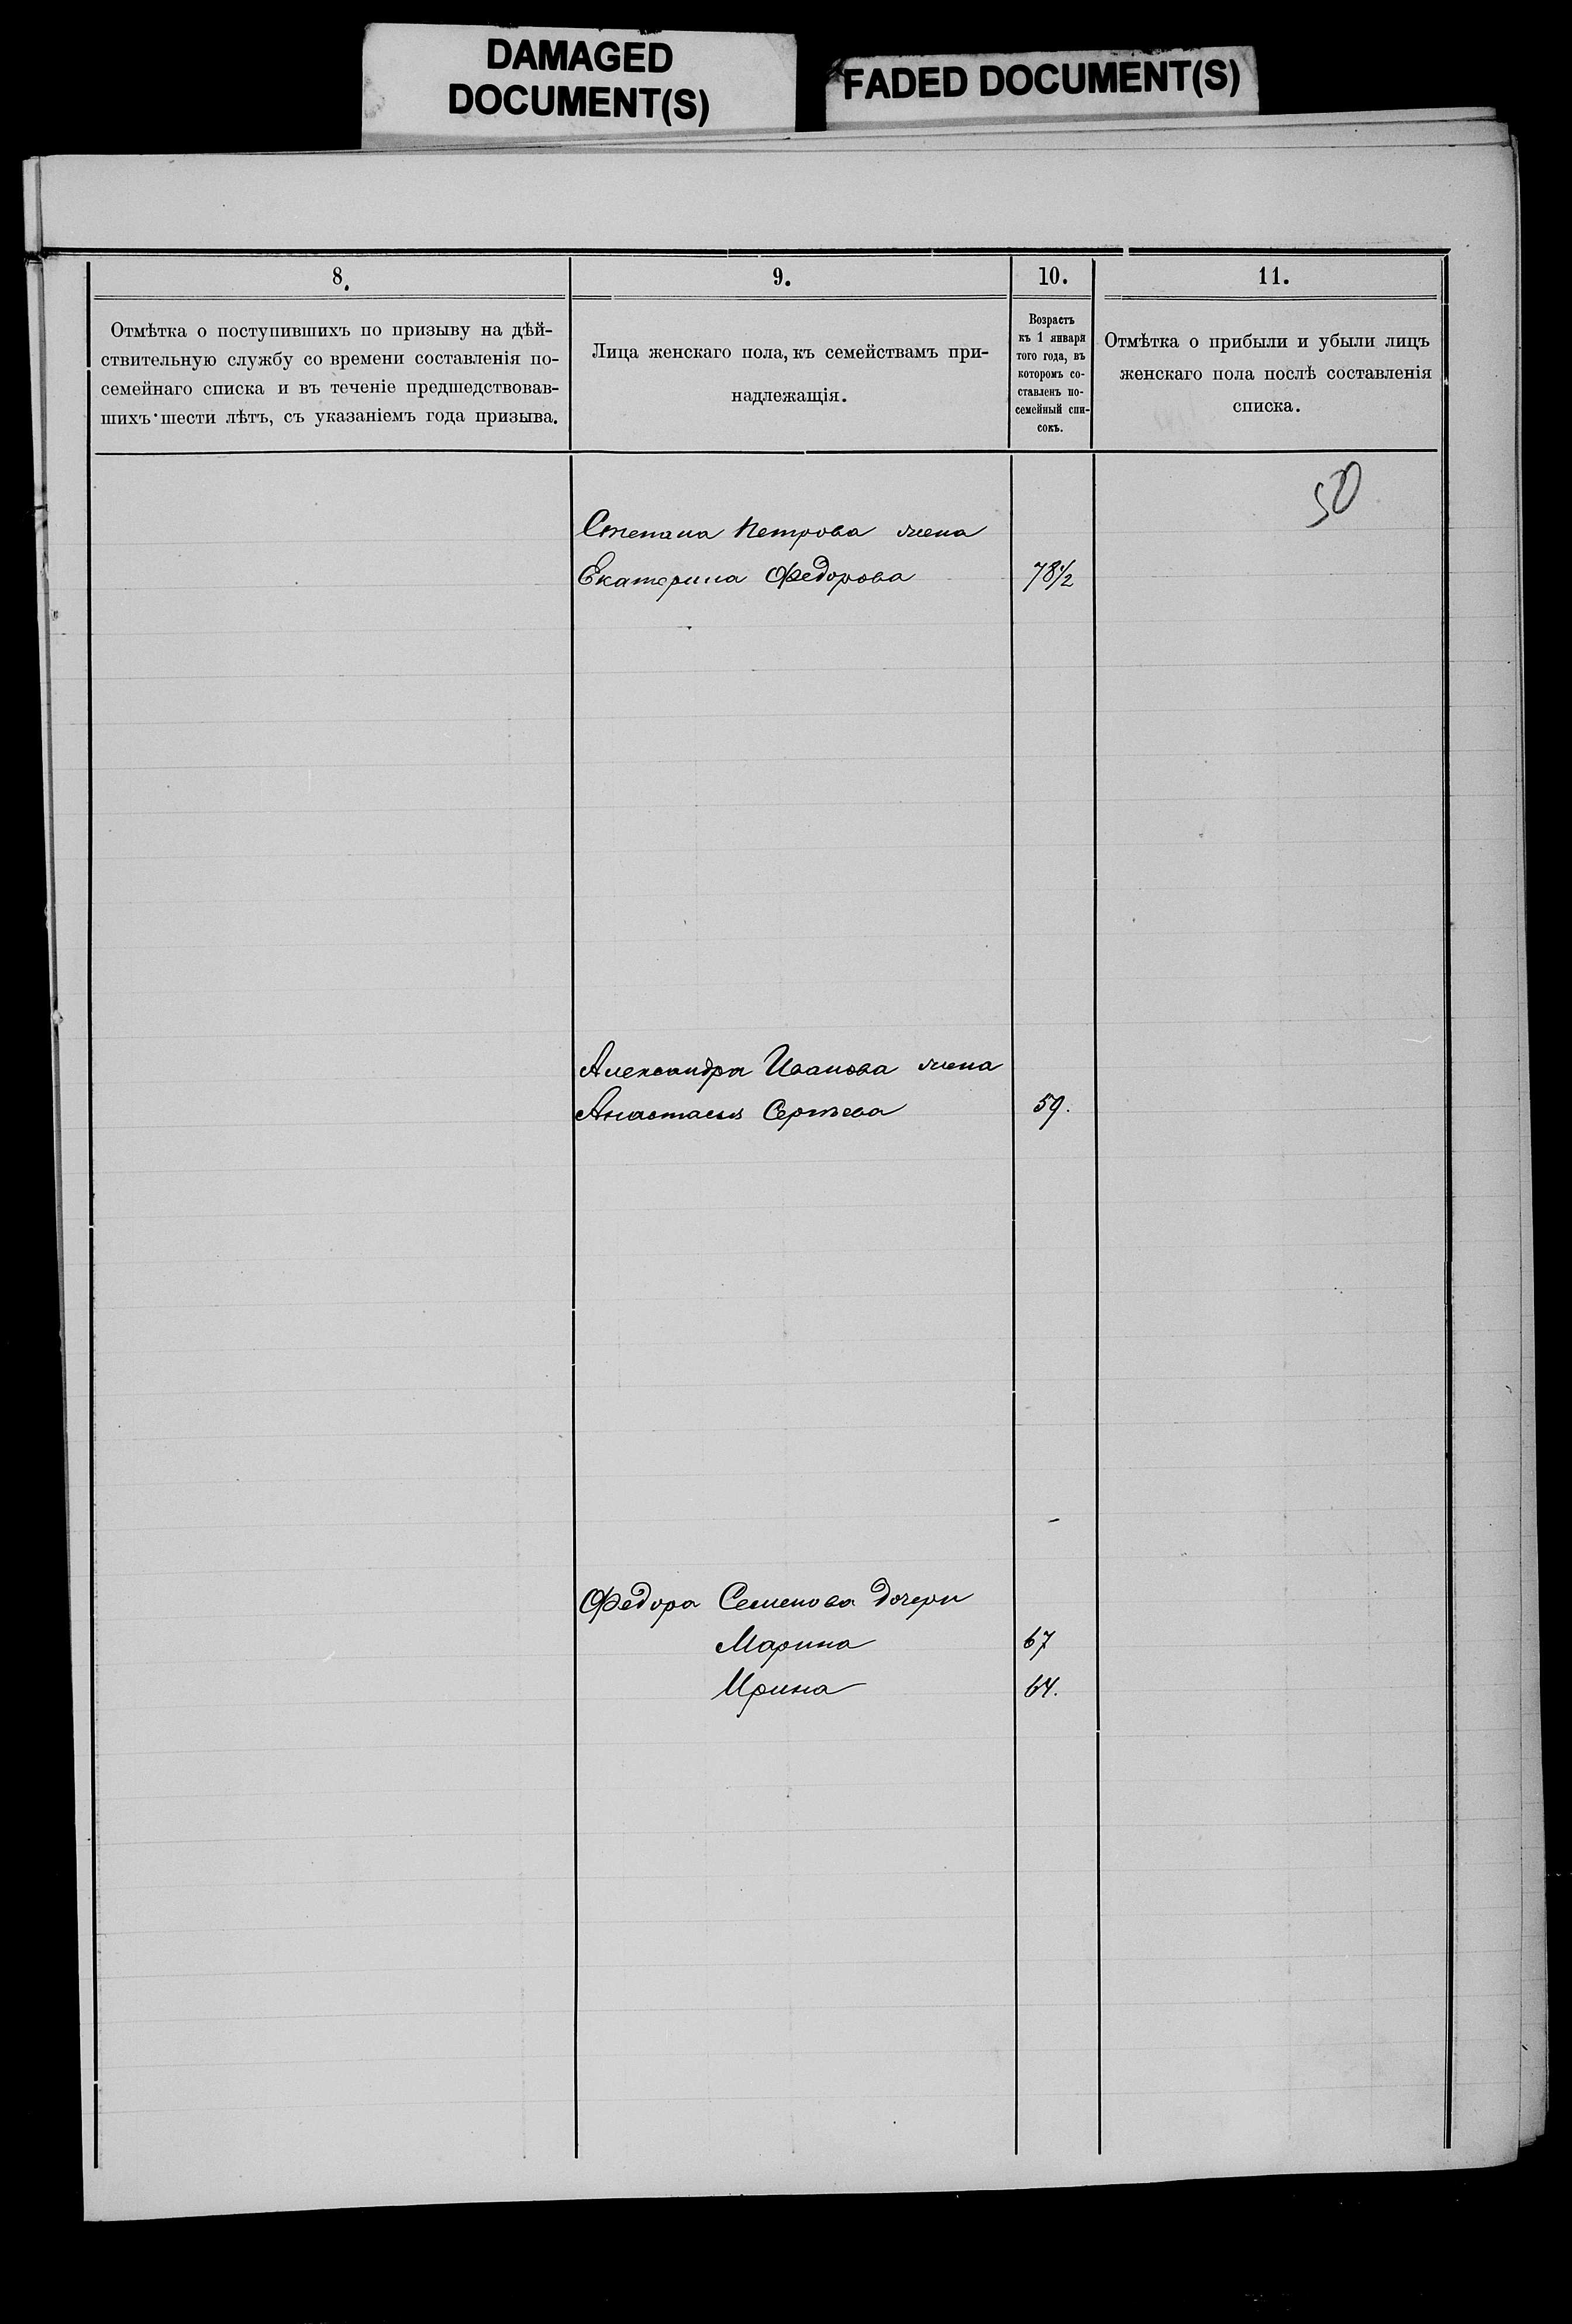 DAMAGED
DOCUMENT(S)
FADED DOCUMENT(S)
8.
Отмѣтка о поступившихъ по призыву на дѣй-
ствительную службу со времени составленія по-
семейнаго списка и въ теченіе предшедствовав-
шихъ шести лѣтъ, съ указаніемъ года призыва.
9.
Лица женскаго пола, къ семействамъ при-
надлежащія.
10.
Возрастъ
къ 1 января
того года, въ
которомъ со-
ставленъ по-
семейный спи-
сокъ.
11.
Отмѣтка о прибыли и убыли лицъ
женскаго пола послѣ составленія
списка.
50
Степана Петрова жена
Екатерина Федорова 78 1/2
Александра Иванова жена
Анастасья Сергѣева 59.
Федора Семенова дочери
Марина 67
Ирина 64.